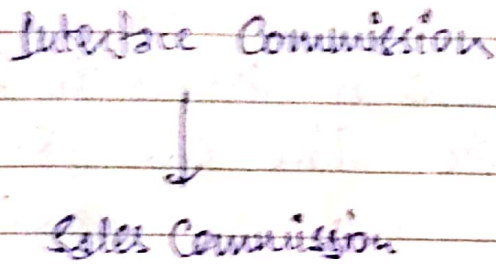 Interface Commission
Sales Commission